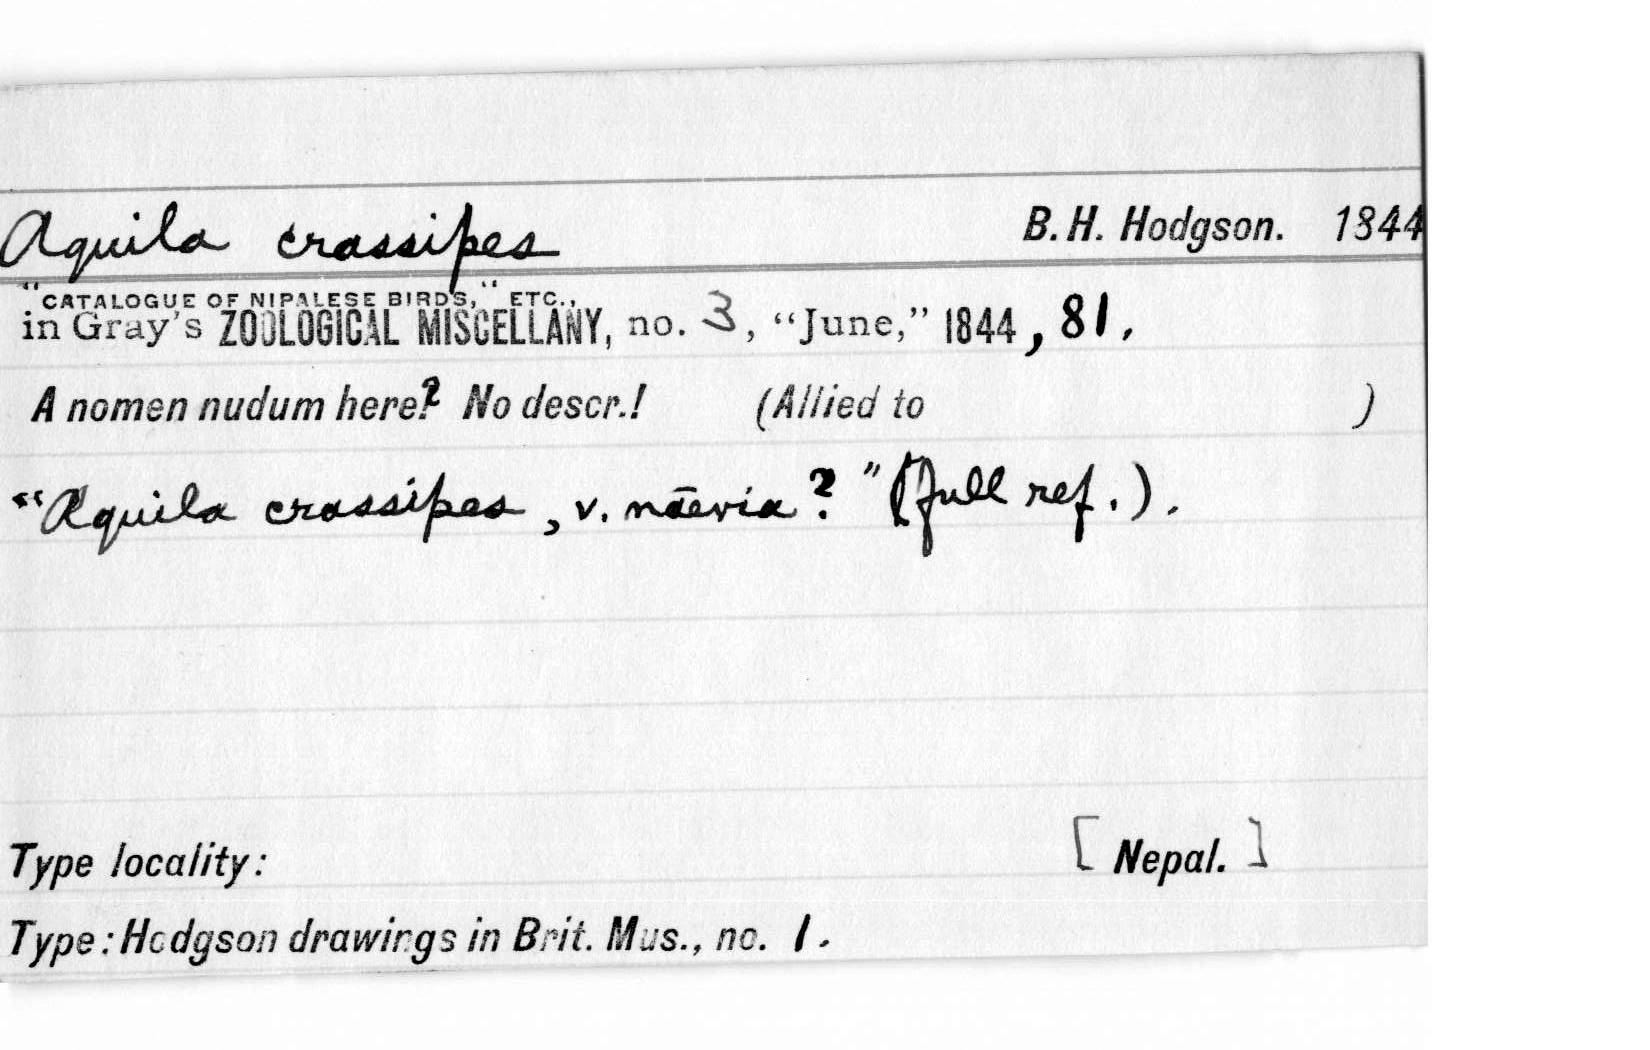 Aquila crassipes B. H. Hodgson. 1844
"CATALOGUE OF NIPALESE BIRDS," ETC.,
in Gray's ZOOLOGICAL MISCELLANY, no. 3, "June," 1844, 81.
A nomen nudum here? No descr.! (Allied to )
"Aquila crassipes, v. nāevia?" (full ref.).
Type locality: [Nepal.]
Type: Hodgson drawings in Brit. Mus., no. 1.